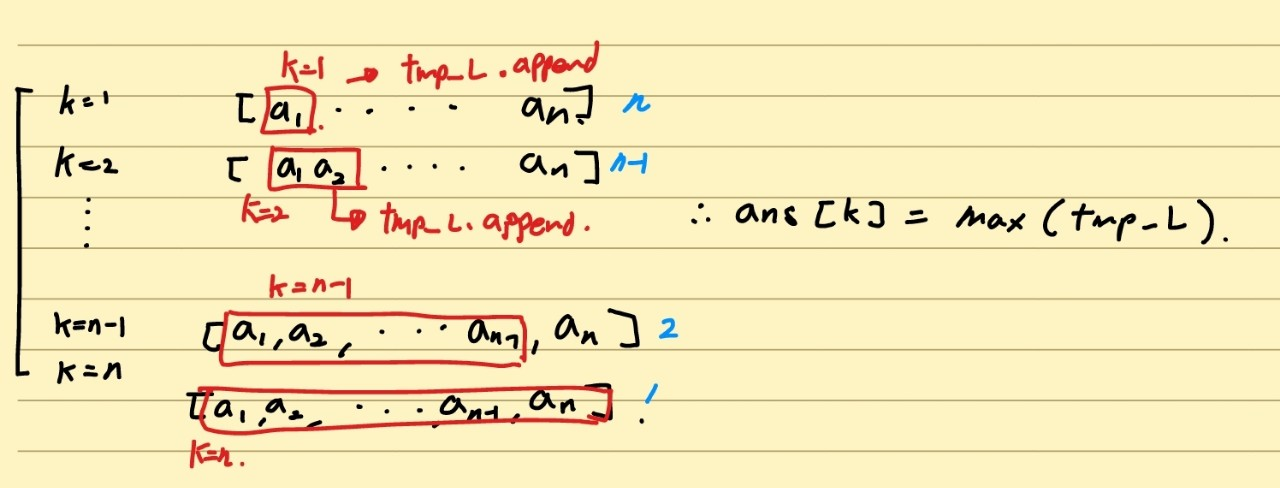 k=1 → tmp_L.append
k=1 [a₁. . . . . aₙ] n
k=2 [a₁ a₂ . . . . aₙ] n-1
k=2 → tmp_L.append.
∴ ans[k] = max(tmp_L).
k=n-1
k=n-1 [a₁,a₂, . . . aₙ₋₁, aₙ] 2
k=n
[a₁,a₂, . . . aₙ₋₁,aₙ] 1
k=n.